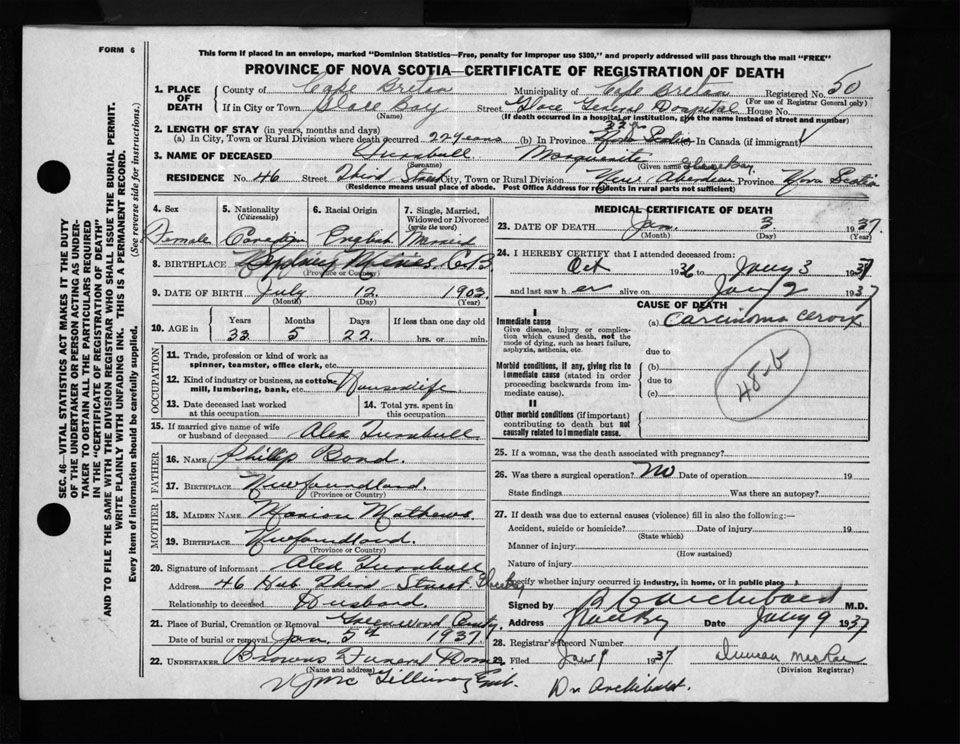 FORM 6
This form if placed in an envelope, marked "Dominion Statistics—Free, penalty for improper use $300," and properly addressed will pass through the mail "FREE"
PROVINCE OF NOVA SCOTIA—CERTIFICATE OF REGISTRATION OF DEATH
1. PLACE OF DEATH County of Cape Breton Municipality of Cape Breton Registered No. 50
(For use of Registrar General only)
If in City or Town Glace Bay Street Glace General Hospital House No.
(Name) (If death occurred in a hospital or institution, give the name instead of street and number)
2. LENGTH OF STAY (in years, months and days)
(a) In City, Town or Rural Division where death occurred 22 years (b) In Province In Canada (if immigrant)
3. NAME OF DECEASED Turnbull Marguerite
(Surname) (Given name)
RESIDENCE No. 46 Street Third Street City, Town or Rural Division New Aberdeen Glace Bay Province Nova Scotia
(Residence means usual place of abode. Post Office Address for residents in rural parts not sufficient)
4. Sex Female
5. Nationality (Citizenship) Canadian
6. Racial Origin English
7. Single, Married, Widowed or Divorced (write the word) Married
8. BIRTHPLACE Sydney Mines C.B.
(Province or Country)
9. DATE OF BIRTH July 12 1903
(Month) (Day) (Year)
10. AGE in Years 33 Months 5 Days 22 If less than one day old hrs. or min.
OCCUPATION
11. Trade, profession or kind of work as spinner, teamster, office clerk, etc.
12. Kind of industry or business, as cotton-mill, lumbering, bank, etc. Housewife
13. Date deceased last worked at this occupation
14. Total yrs. spent in this occupation
15. If married give name of wife or husband of deceased Alex Turnbull
FATHER
16. NAME Phillip Bond.
17. BIRTHPLACE Newfoundland.
(Province or Country)
MOTHER
18. MAIDEN NAME Marion Mathews
19. BIRTHPLACE Newfoundland.
(Province or Country)
20. Signature of informant Alex Turnbull
Address 46 Third Street
Relationship to deceased Husband.
21. Place of Burial, Cremation or Removal Greenwood
Date of burial or removal Jan. 5th 1937
22. UNDERTAKER Browns Funeral Home
(Name and address)
MEDICAL CERTIFICATE OF DEATH
23. DATE OF DEATH Jan. 3. 1937
(Month) (Day) (Year)
24. I HEREBY CERTIFY that I attended deceased from:
Oct 1936 to Jany 3 1937
and last saw her alive on Jany 2 1937
CAUSE OF DEATH
I
Immediate cause (a) Carcinoma cervix
Give disease, injury or complication which caused death, not the mode of dying, such as heart failure, asphyxia, asthenia, etc.
due to
Morbid conditions, if any, giving rise to Immediate cause (stated in order proceeding backwards from immediate cause).
(b)
due to
(c)
48-b
II
Other morbid conditions (if important) contributing to death but not causally related to Immediate cause.
25. If a woman, was the death associated with pregnancy?
26. Was there a surgical operation? No Date of operation 19
State findings Was there an autopsy?
27. If death was due to external causes (violence) fill in also the following:—
Accident, suicide or homicide? Date of injury 19
(State which)
Manner of injury
(How sustained)
Nature of injury
Specify whether injury occurred in industry, in home, or in public place
Signed by Archibald M.D.
Address Date Jany 9 1937
28. Registrar's Record Number
29. Filed Jan 9 1937 Duncan McRae
(Division Registrar)
Dr. Archibald.
SEC. 46—VITAL STATISTICS ACT MAKES IT THE DUTY
OF THE UNDERTAKER OR PERSON ACTING AS UNDER-
TAKER TO OBTAIN ALL THE PARTICULARS REQUIRED
IN THE "CERTIFICATE OF REGISTRATION OF DEATH"
AND TO FILE THE SAME WITH THE DIVISION REGISTRAR WHO SHALL ISSUE THE BURIAL PERMIT.
WRITE PLAINLY WITH UNFADING INK. THIS IS A PERMANENT RECORD.
Every item of information should be carefully supplied. (See reverse side for instructions.)